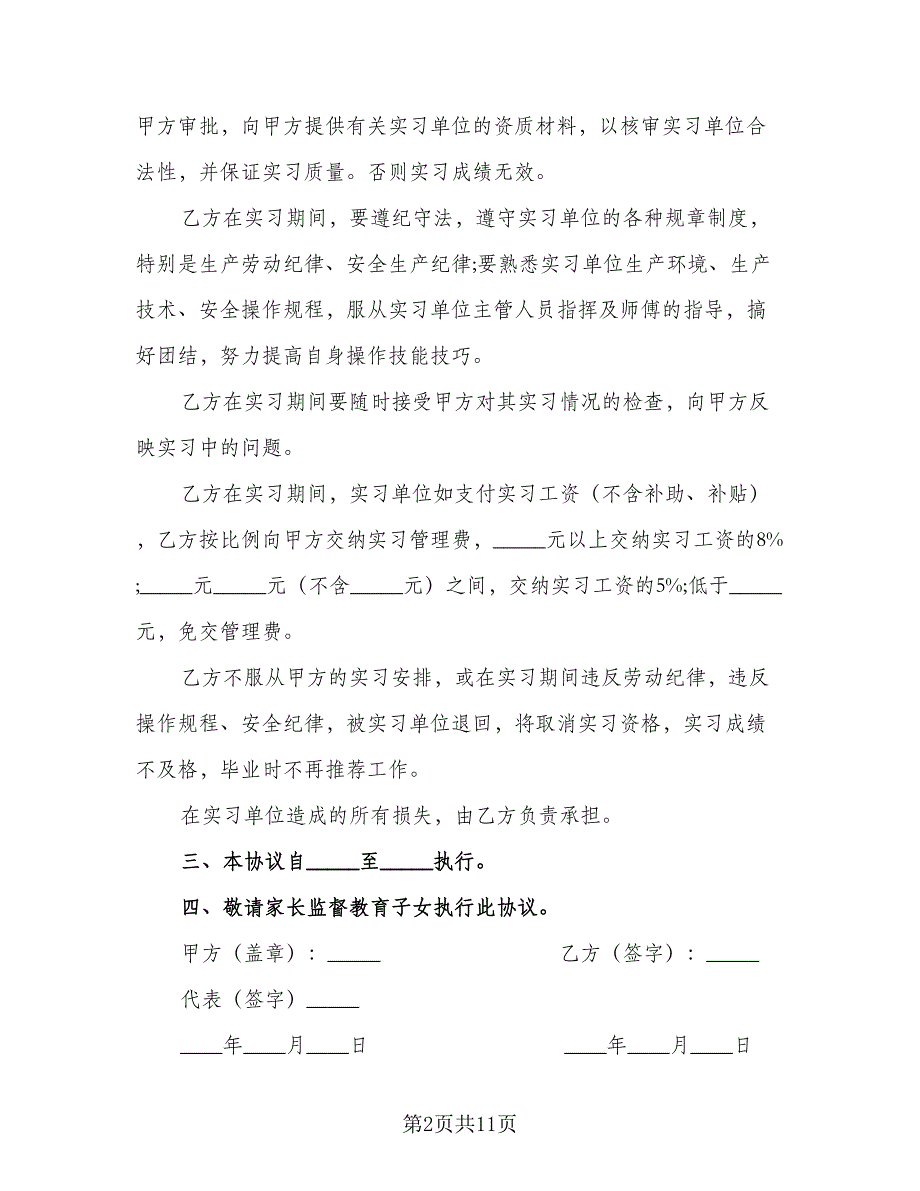 甲方审批，向甲方提供有关实习单位的资质材料，以核审实习单位合
法性，并保证实习质量。否则实习成绩无效。
乙方在实习期间，要遵纪守法，遵守实习单位的各种规章制度，
特别是生产劳动纪律、安全生产纪律;要熟悉实习单位生产环境、生产
技术、安全操作规程，服从实习单位主管人员指挥及师傅的指导，搞
好团结，努力提高自身操作技能技巧。
乙方在实习期间要随时接受甲方对其实习情况的检查，向甲方反
映实习中的问题。
乙方在实习期间，实习单位如支付实习工资（不含补助、补贴）
，乙方按比例向甲方交纳实习管理费，_____元以上交纳实习工资的8%
;_____元_____元（不含_____元）之间，交纳实习工资的5%;低于_____
元，免交管理费。
乙方不服从甲方的实习安排，或在实习期间违反劳动纪律，违反
操作规程、安全纪律，被实习单位退回，将取消实习资格，实习成绩
不及格，毕业时不再推荐工作。
在实习单位造成的所有损失，由乙方负责承担。
三、本协议自_____至_____执行。
四、敬请家长监督教育子女执行此协议。
甲方（盖章）：_____ 乙方（签字）：_____
代表（签字）_____
____年____月____日 ____年____月____日
第2页共11页